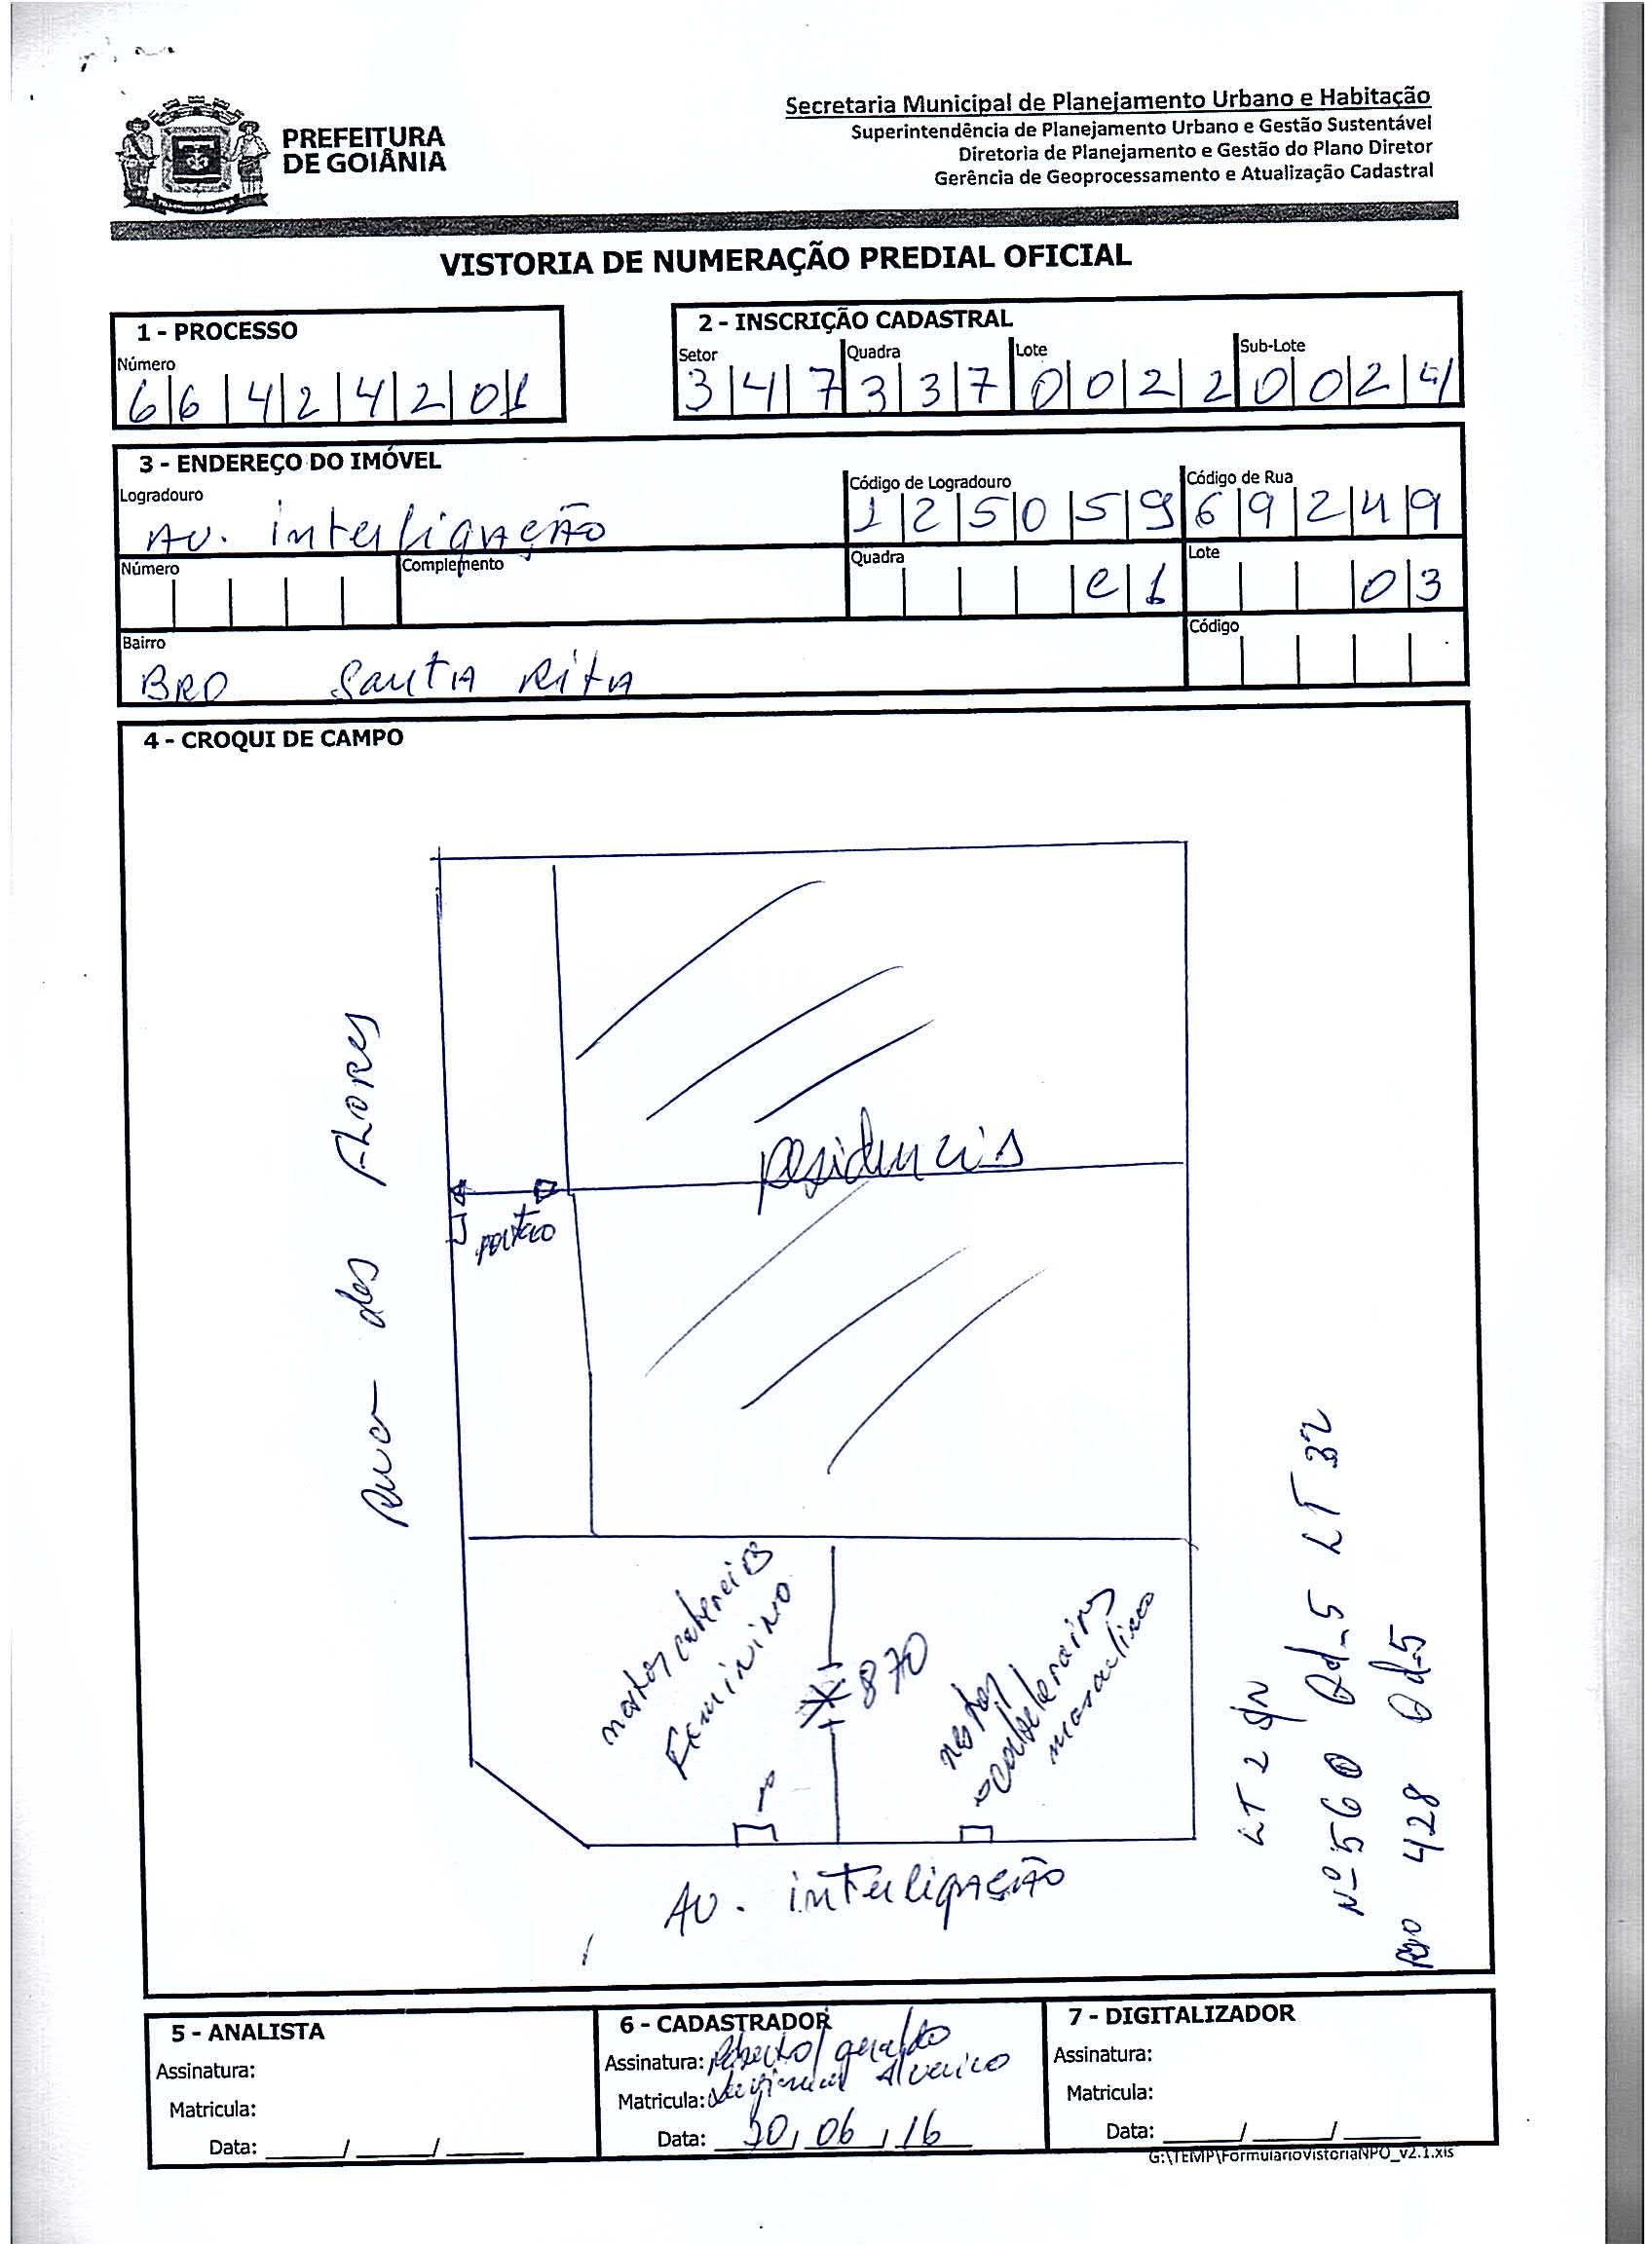 Secretaria Municipal de Planejamento Urbano e Habitação
Superintendência de Planejamento Urbano e Gestão Sustentável
Diretoria de Planejamento e Gestão do Plano Diretor
Gerência de Geoprocessamento e Atualização Cadastral
PREFEITURA
DE GOIÂNIA
VISTORIA DE NUMERAÇÃO PREDIAL OFICIAL
1 - PROCESSO
Número
6 6 4 2 4 2 0 1
2 - INSCRIÇÃO CADASTRAL
Setor Quadra Lote Sub-Lote
3 4 7 3 3 7 0 0 2 2 0 0 2 4
3 - ENDEREÇO DO IMÓVEL
Logradouro Código de Logradouro Código de Rua
Av. interligação 1 2 5 0 5 9 6 9 2 4 9
Número Complemento Quadra Lote
C 1 0 3
Bairro Código
BRO Santa Rita
4 - CROQUI DE CAMPO
Rua das Flores
residencis
portão
870
Feminino
masculino
Av. interligação
LT 2 S/N
Nº 560 Qd-5 LT 32
428 Qd-5
5 - ANALISTA
Assinatura:
Matricula:
Data: ____/____/____
6 - CADASTRADOR
Assinatura: Roberto Geraldo
Matricula:
Data: 20/06/16
7 - DIGITALIZADOR
Assinatura:
Matricula:
Data: ____/____/____
G:\TEMP\FormularioVistoriaNPO_v2.1.xls